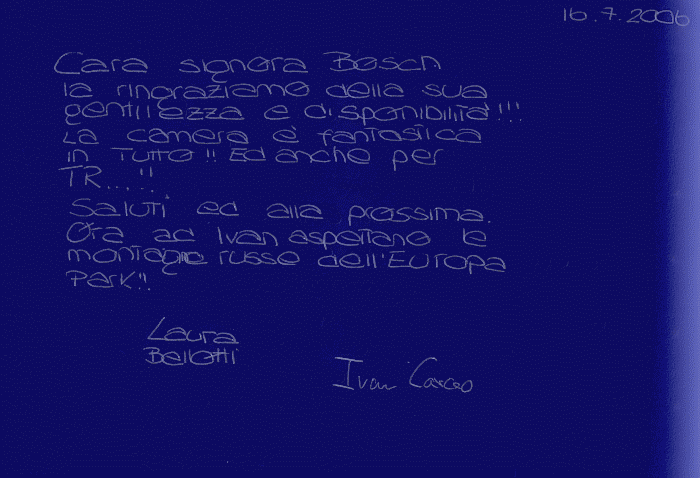 16.7.2006
Cara signora Bosch
la ringraziamo della sua
gentilezza e disponibilità!!!
La camera è fantastica
in TUTTO!! Ed anche per
TR...!!
Saluti ed alla prossima.
Ora ad Ivan aspettano le
montagne russe dell'Europa
Park!!
Laura
Bellotti
Ivan